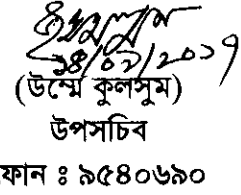 ১৪/০২/২০১৭
(উম্মে কুলসুম)
উপসচিব
ফোন ঃ ৯৫৪০৬৯০